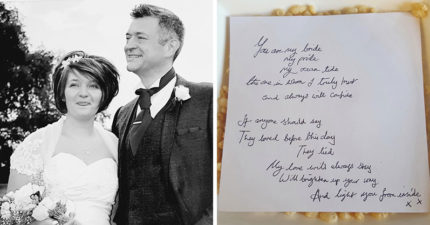 You are my bride
my pride
my ocean tide
the one in whom I truly trust
and always will confide
If anyone should say
They loved before this day
They lied
My love will always stay
Will brighten up your way
And light you from inside
x x